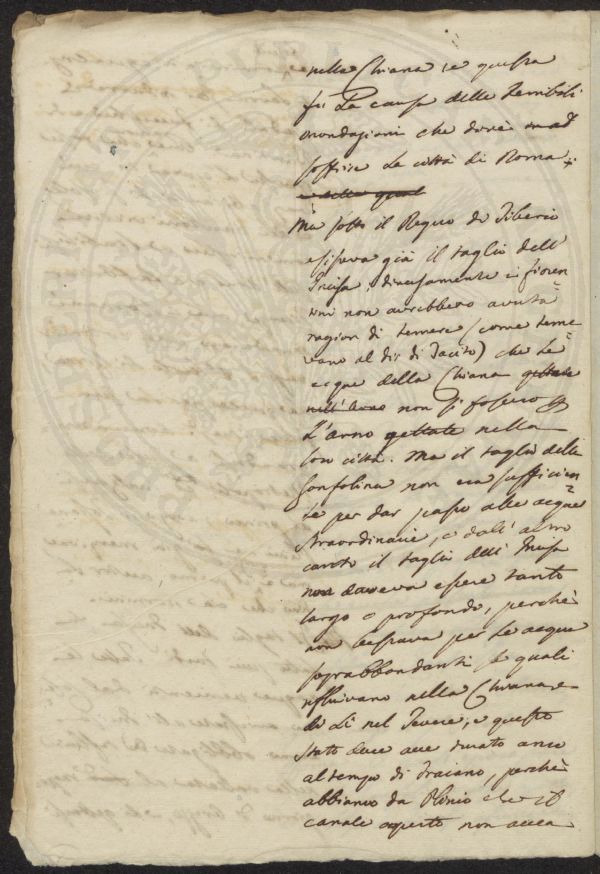 nella Chiana, e questa
fu la causa delle terribili
inondazioni che dovè
soffrire la città di Roma +
e della qual
Ma sotto il Regno di Tiberio
esisteva già il taglio dell'
Incisa; diversamente i fioren=
tini non avrebbero avuta
ragion di temere (come teme=
vano al dir di Tacito) che le
acque della Chiana gettate
nell'Arno non si fossero
L'arno gettate nella
loro città. Ma il taglio della
Gonfolina non era sufficien=
te per dar passo alle acque
straordinarie, e dall'altro
canto il taglio dell'Incisa
non doveva essere tanto
largo e profondo, perchè
non bastava per le acque
soprabbondanti, le quali
rifluivano nella Chiana e
di lì nel Tevere; e questo
stato deve aver durato anco
al tempo di Traiano, perchè
abbiamo da Plinio che il
canale aperto non avea